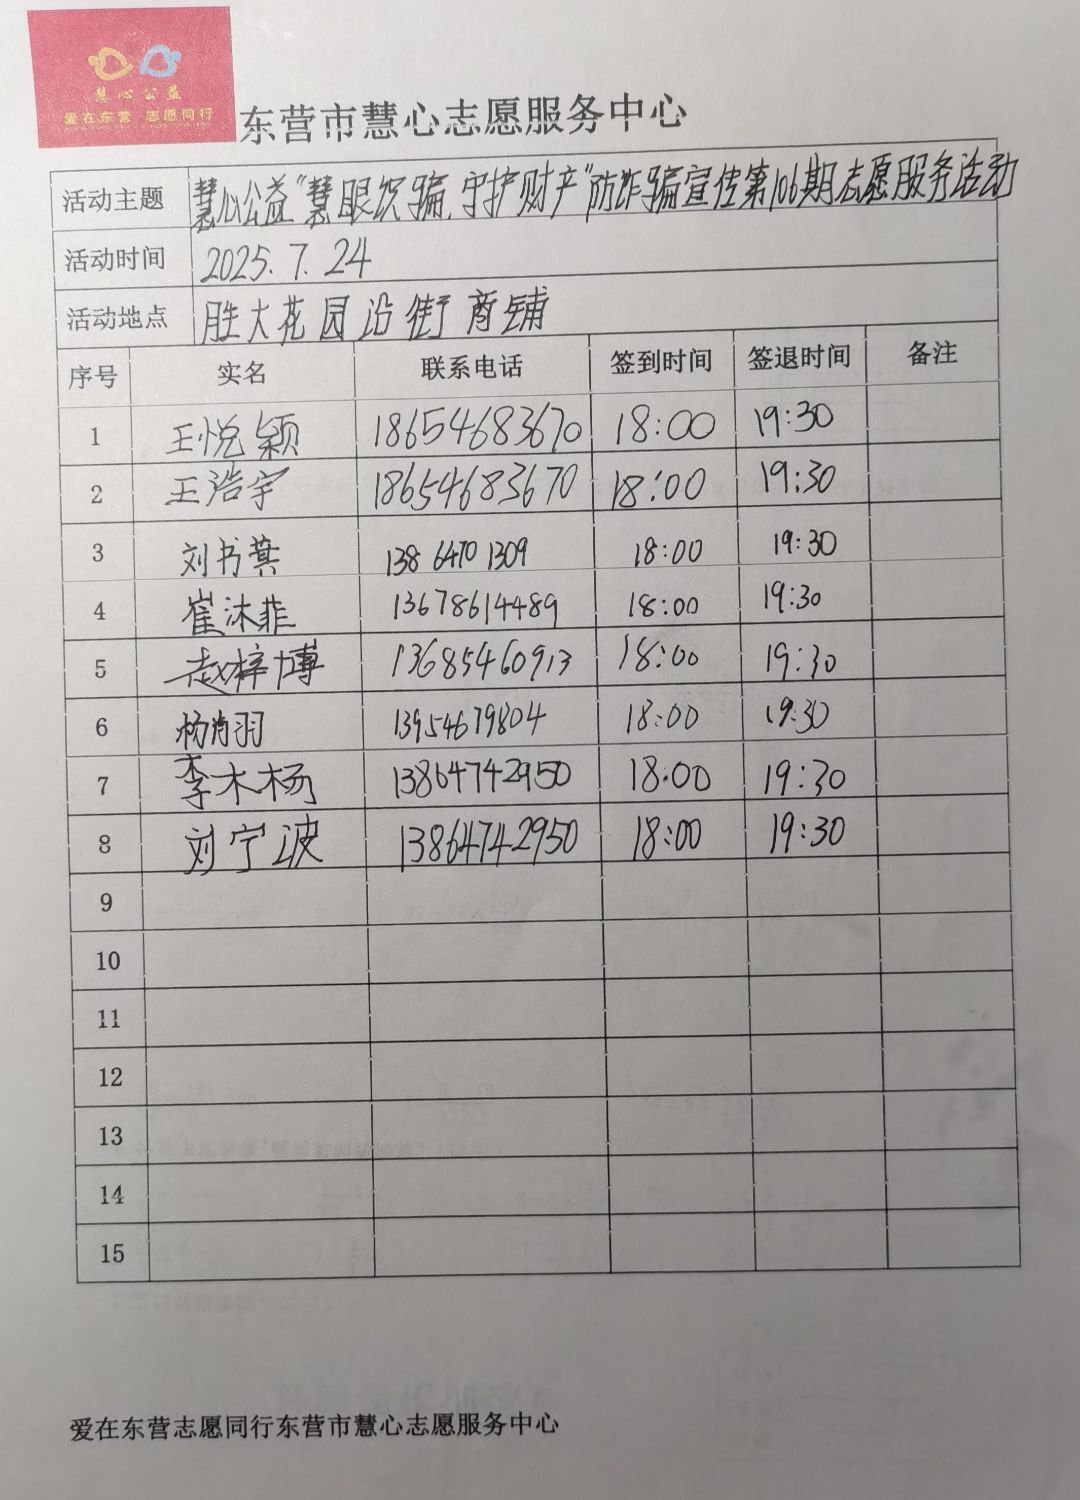 慧心公益
爱在东营 志愿同行
东营市慧心志愿服务中心
活动主题 慧心公益"慧眼识骗,守护财产"防诈骗宣传第106期志愿服务活动
活动时间 2025.7.24
活动地点 胜大花园沿街商铺
序号 实名 联系电话 签到时间 签退时间 备注
1 王悦颖 18654683670 18:00 19:30
2 王浩宇 18654683670 18:00 19:30
3 刘书萁 138 6470 1309 18:00 19:30
4 崔沐菲 13678614489 18:00 19:30
5 赵梓博 13685460913 18:00 19:30
6 杨肖羽 13954679804 18:00 19:30
7 李木杨 13864742950 18:00 19:30
8 刘宁波 13864742950 18:00 19:30
9
10
11
12
13
14
15
爱在东营志愿同行东营市慧心志愿服务中心